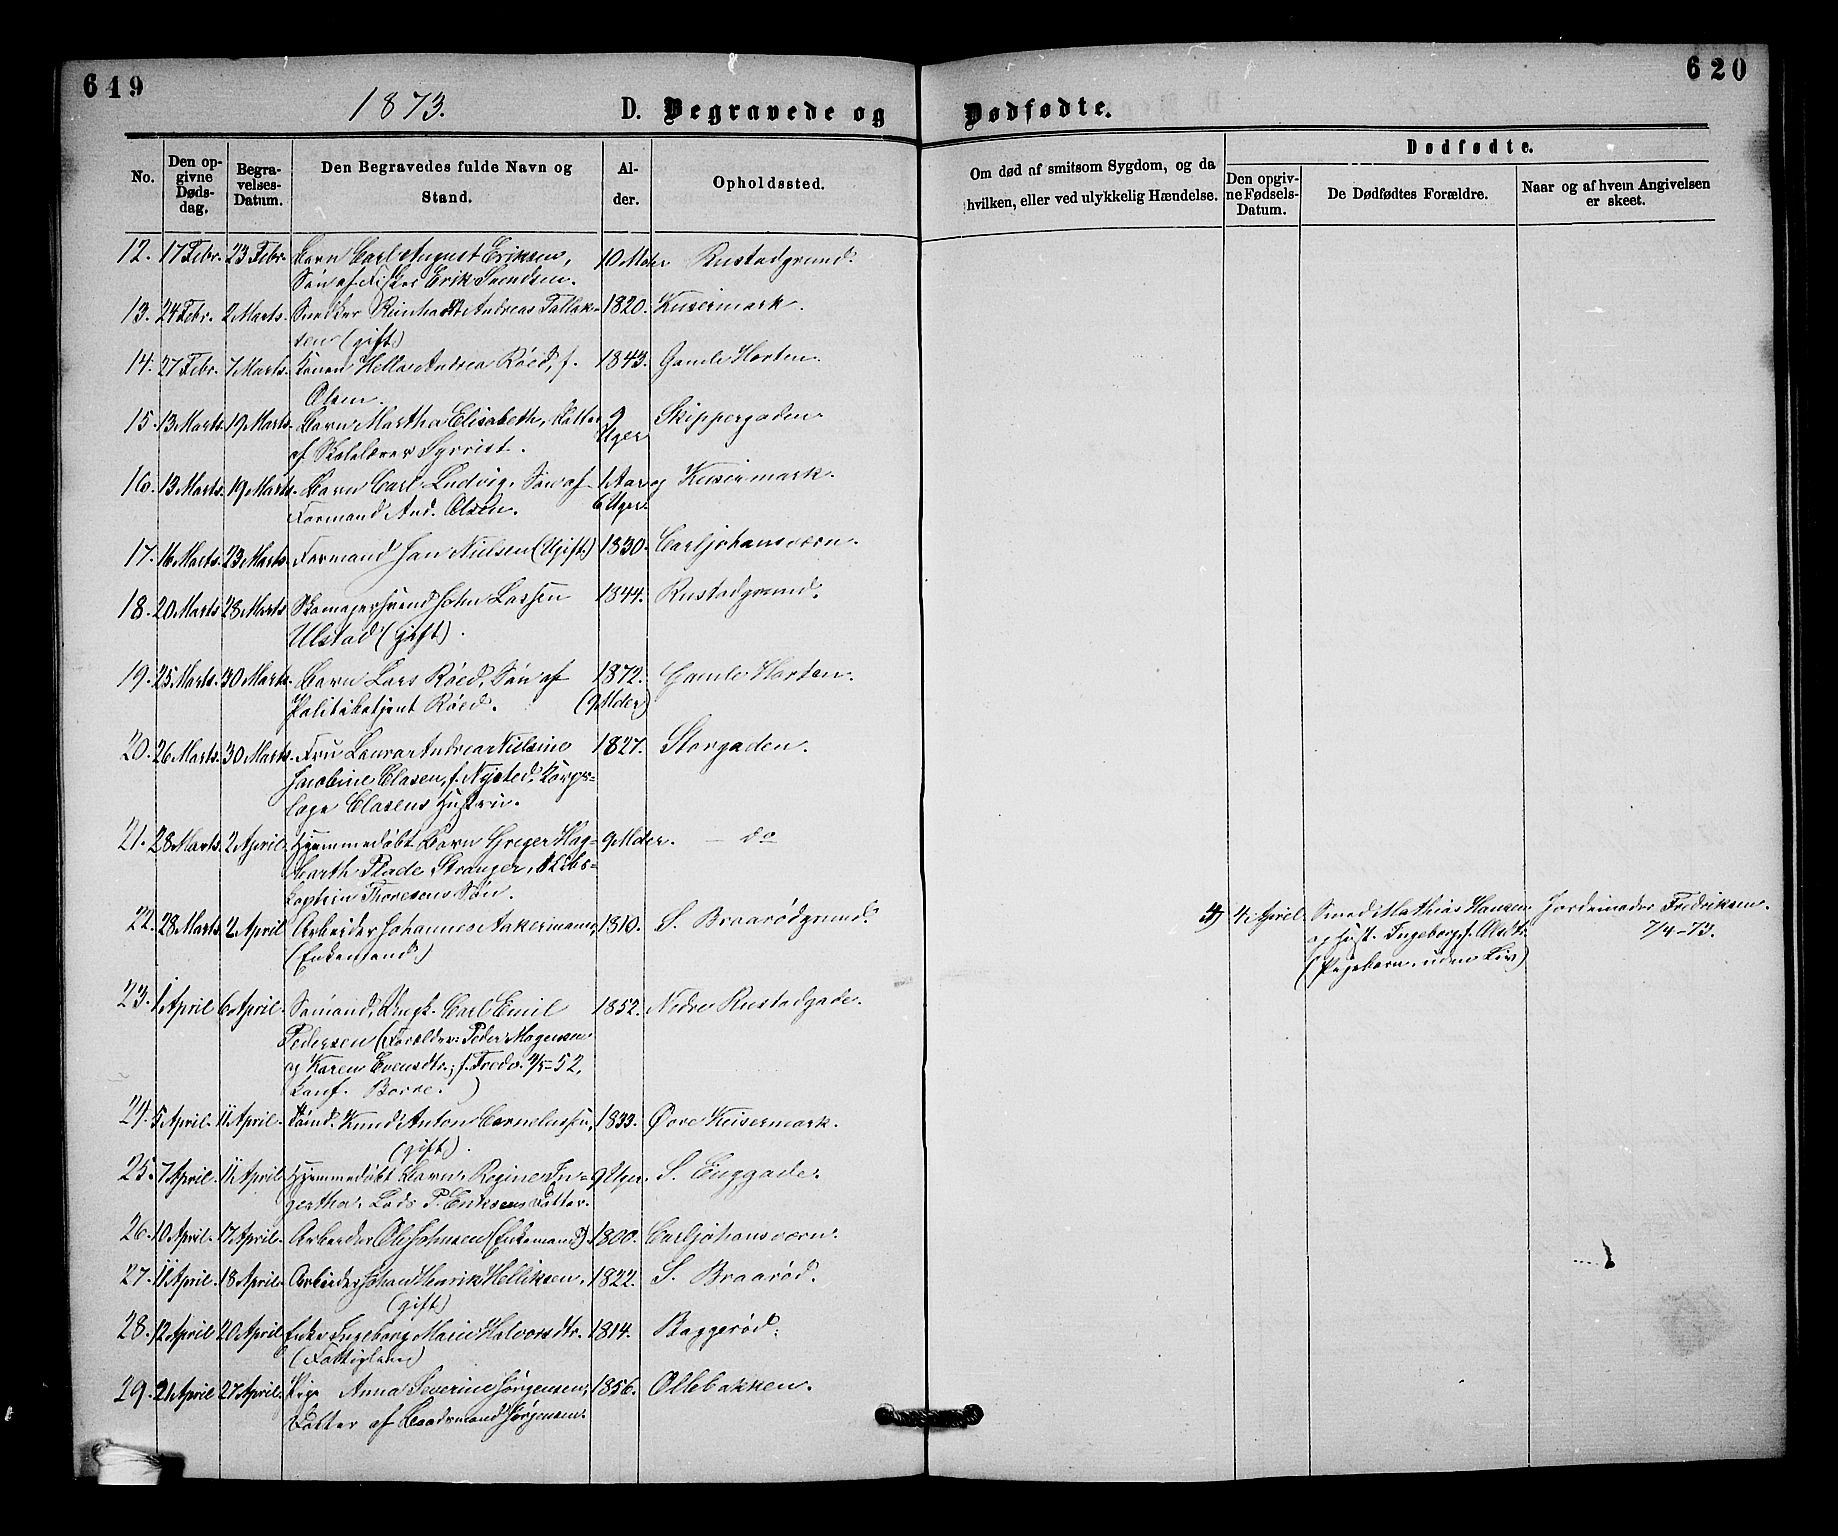 649
1873.
D. Begravede og
No.
Den op-
givne
Døds-
dag.
Begra-
velses-
Datum.
Den Begravedes fulde Navn og
Stand.
Al-
der.
Opholdssted.
12. 17 Febr. 23 Febr. Barn Carl August Eriksen, 10 Mder Rustadgrund.
Søn af Fisker Erik Svendsen.
13. 24 Febr. 2 Marts. Reinhardt Andreas Tallak- 1820. Keisermark.
sen (gift)
14. 27 Febr. 7 Marts. Konen Hella Andrea Röed, f. 1843. Gamle Horten.
Olsen.
15. 13 Marts. 19 Marts. Barn Martha Elisabeth, Datter 9 Skippergaden.
af Skolelærer Uger
16. 13 Marts. 19 Marts. Barn Carl Ludvig, Søn af 1 Aar og Keisermark.
Formand And. Olsen. 6 Uger.
17. 16 Marts. 23 Marts. Formand Jan Nielsen (Ugift) 1830. Carljohansværn.
18. 20 Marts 28 Marts Skomagersvend John Larsen 1844. Rustadgrund.
Ulstad (gift).
19. 25 Marts. 30 Marts. Barn Lars Röed, Søn af 1872. Gamle Horten.
Politibetjent Röed. (9 Mder)
20. 26 Marts. 30 Marts. Fru Laura Andrea Nielsine 1827. Storgaden.
Jacobine Clasen, f. Nysted, Korps-
læge Clasens Hustru.
21. 28 Marts. 2 April. Hjemmedøbt Barn Greger Hag- 9 Mder. — do
barth Plade Stranger, Skibs-
kaptein Thoresens Søn.
22. 28 Marts 2 April Arbeider Johannes Aakermann, 1810. S. Braarødgrund.
(Enkemand.)
23. 1 April 6 April. Sømand, Ungk. Carl Emil 1852. Nedre Rustadgade.
Pedersen (Forældre: Peder Mogensen
og Karen Evensdtr., f. 52,
Borre.)
24. 5 April. 11 April. Knud Anton Cornelussen, 1833. Øvre Keisermark.
(gift).
25. 7 April. 11 April. Hjemmedøbt Barn Regine In- 9 Uger. S. Enggade.
gertha, Lods P. Eriksens Datter.
26. 10 April. 17 April. Arbeider Ole Johnsen (Enkemand). 1800. Carljohansværn.
27. 11 April. 18 April. Arbeider Johan Henrik Helliksen. 1822. S. Braarød.
(gift)
28. 12 April 20 April Enke Ingeborg Marie Halvorsdtr. 1814. Baggerød.
(Fattiglem)
29. 21 April 27 April. Pige Anna Severine Jørgensen, 1856. Ollebakken.
Datter af Baadsmand Jørgensen.
620
Dødfødte.
Om død af smitsom Sygdom, og da
hvilken, eller ved ulykkelig Hændelse.
Dødfødte.
Den opgiv-
ne Fødsels-
Datum.
De Dødfødtes Forældre.
Naar og af hvem Angivelsen
er skeet.
4) 4 April. Smed Mathias Hansen Jordemoder Fredriksen.
og Hust. Ingeborg f. Olsdtr. 7/4-73.
(Pigebarn uden Liv)